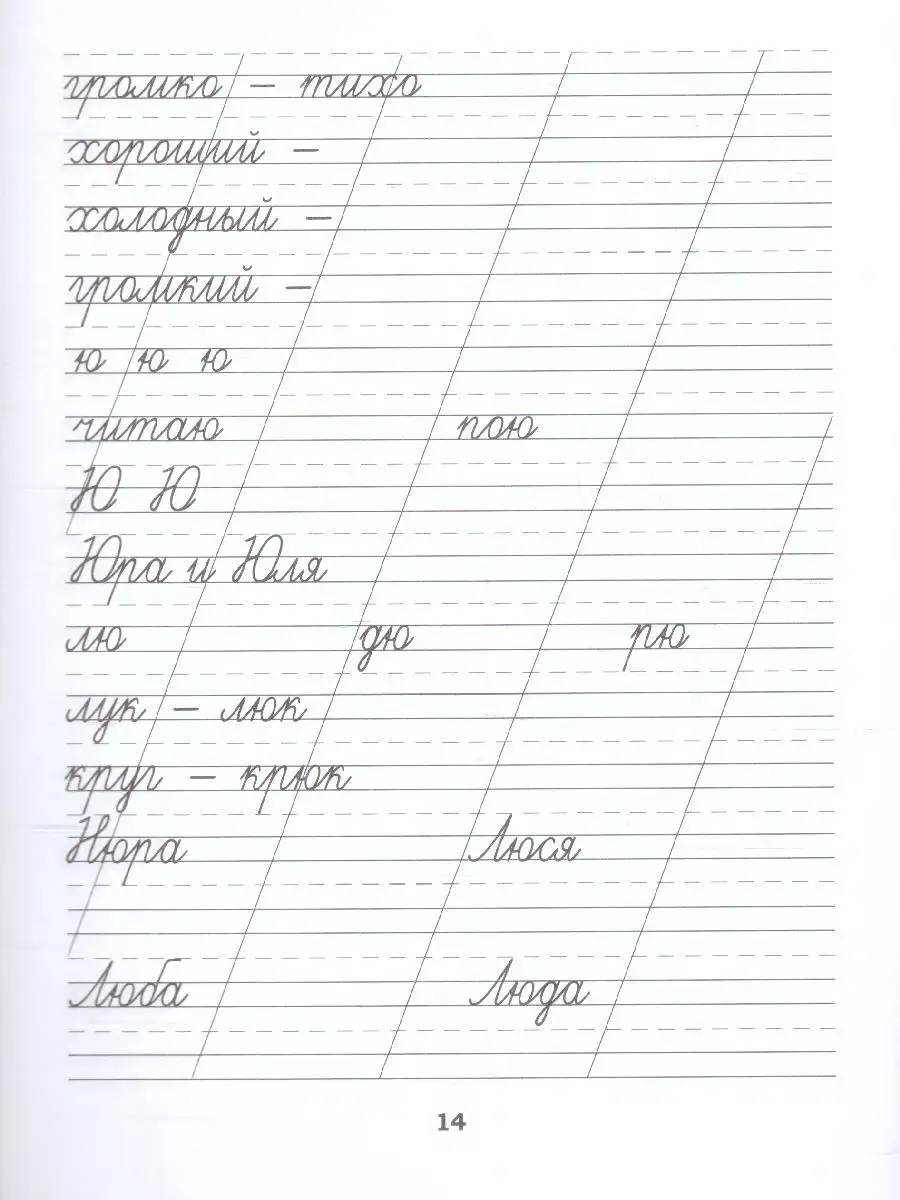 громко – тихо
хороший –
холодный –
громкий –
ю ю ю
читаю пою
Ю Ю
Юра и Юля
лю дю рю
лук – люк
круг – крюк
Нюра Люся
Люба Люда
14